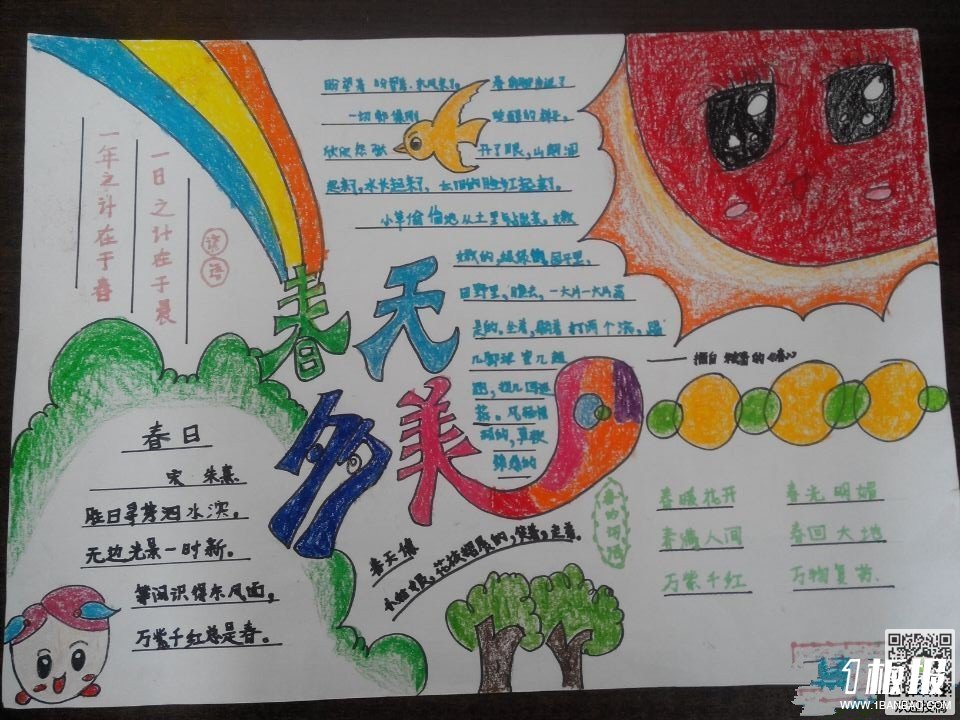 一年之计在于春
一日之计在于晨
谚语
盼望着 盼望着.东风来了。春的脚步近了
一切都像刚睡醒的样子。
欣欣然张开了眼，山朗润
起来了，水长起来了，太阳的脸红起来了。
小草偷偷地从土里钻出来，嫩
嫩的，绿绿的，园子里，
田野里，瞧去，一大片一大片满
是的。坐着，躺着 打两个滚，踢
几脚球 赛几趟
跑，捉几回迷
藏。风轻悄
悄的，草软
绵绵的
——摘自
春天多美
春日
宋 朱熹
胜日寻芳泗水滨，
无边光景一时新。
等闲识得东风面，
万紫千红总是春。
春天像
小姑娘，花枝招展的，笑着，走着。
春的词语
春暖花开
春光明媚
春满人间
春回大地
万紫千红
万物复苏
1板报
WWW.1BANBAO.COM